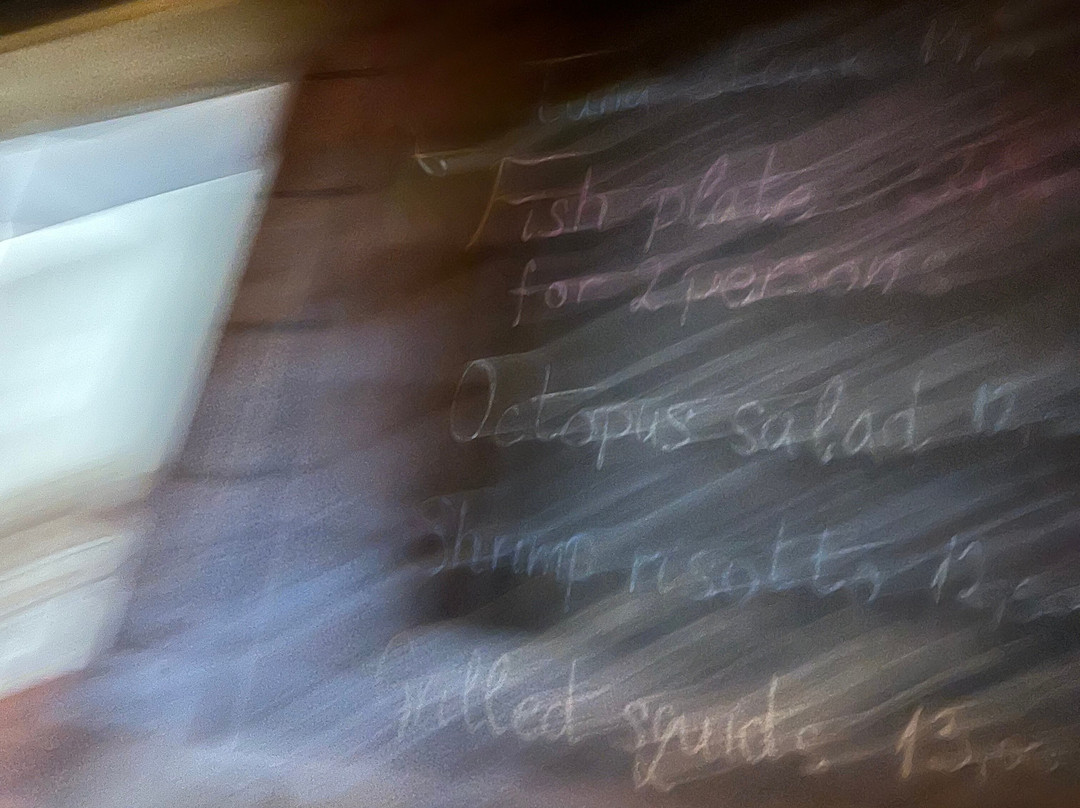 Tuna
Fish plate
for 2 persons
Octopus salad 12,
Shrimp risotto 12,00
Grilled squids 13,00